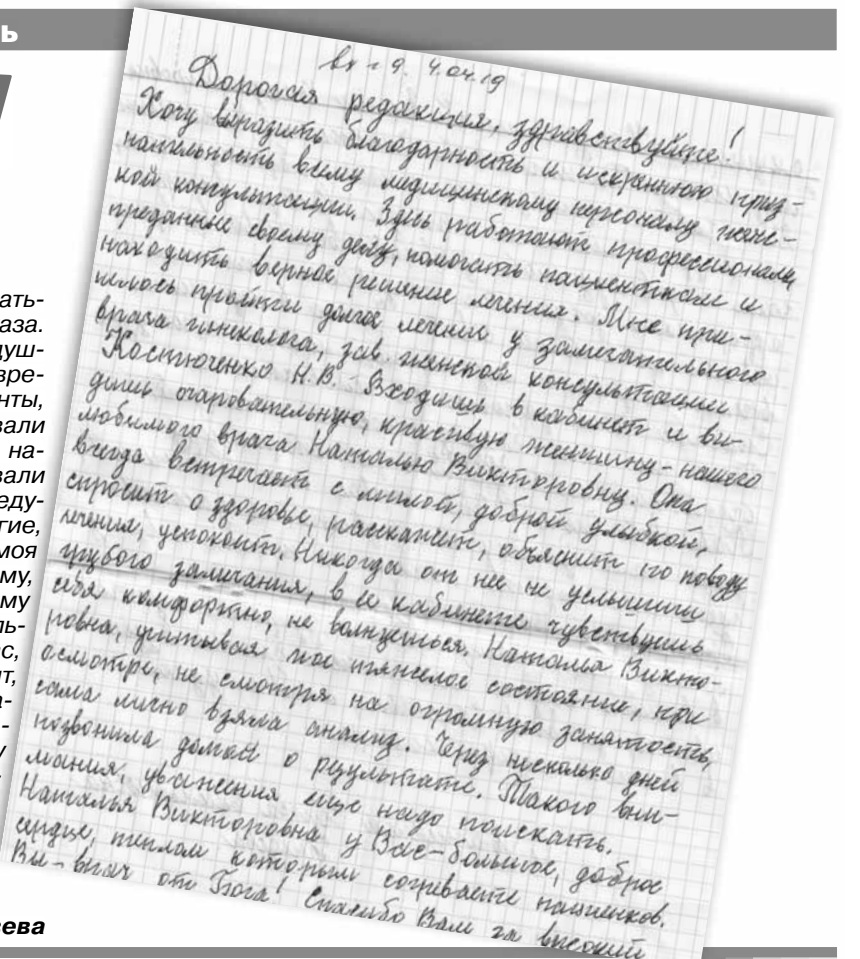 ь
ать-
аза.
душ-
вре-
нты,
вали
на-
вали
еду-
гие,
моя
му,
му
ль-
с,
т,
а-
-
у
сева
вх 9. 4.04.19
Дорогая редакция, здравствуйте!
Хочу выразить благодарность и искреннюю приз-
нательность всему медицинскому персоналу женс-
кой консультации. Здесь работают профессионалы,
преданные своему делу, помогать пациенткам и
находить верное решение лечения. Мне при-
шлось пройти долгое лечение у замечательного
врача гинеколога, зав. женской консультации
Костюченко Н.В. Входишь в кабинет и ви-
дишь очаровательную, красивую женщину - нашего
любимого врача Наталью Викторовну. Она
всегда встречает с милой, доброй улыбкой,
спросит о здоровье, расскажет, объяснит по поводу
лечения, успокоит. Никогда от нее не услышишь
грубого замечания, в ее кабинете чувствуешь
себя комфортно, не волнуешься. Наталья Викто-
ровна, учитывая мое тяжелое состояние, при
осмотре, не смотря на огромную занятость,
сама лично взяла анализ. Через несколько дней
позвонила домой о результате. Такого вни-
мания, уважения еще надо поискать.
Наталья Викторовна у Вас - большое, доброе
сердце, теплом которым согреваете пациенков.
Вы - врач от Бога! Спасибо Вам за высокий